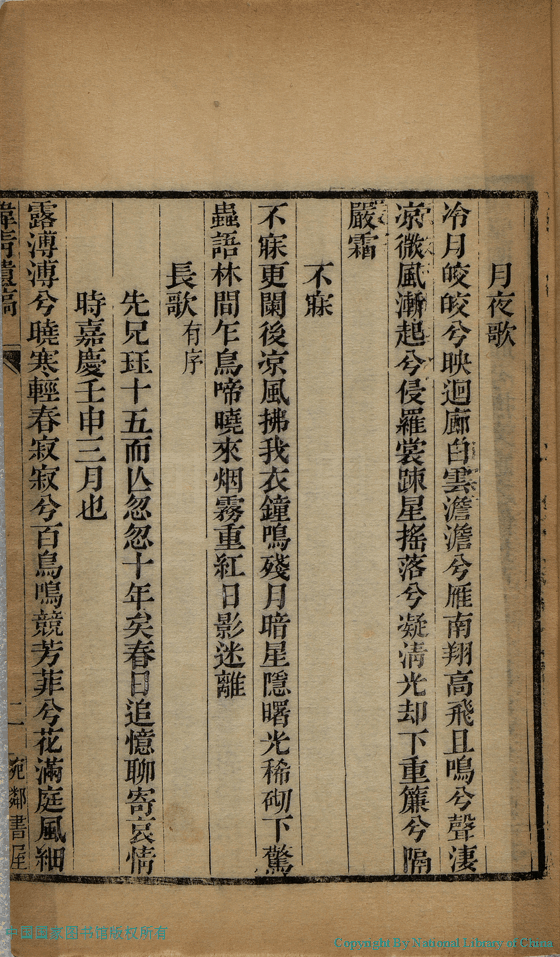 月夜歌
冷月皎皎兮映迴廊白雲澹澹兮雁南翔高飛且鳴兮聲淒
凉微風漸起兮侵羅裳踈星搖落兮凝清光却下重簾兮隔
嚴霜
不寐
不寐更闌後凉風拂我衣鐘鳴殘月暗星隱曙光稀砌下驚
蟲語林間乍鳥啼曉來烟霧重紅日影迷離
長歌有序
先兄珏十五而亾忽忽十年矣春日追憶聊寄哀情
時嘉慶壬申三月也
露漙漙兮曉寒輕春寂寂兮百鳥鳴競芳菲兮花滿庭風細
緯青遺稿 二 宛鄰書屋
中国国家图书馆版权所有
Copyright By National Library of China